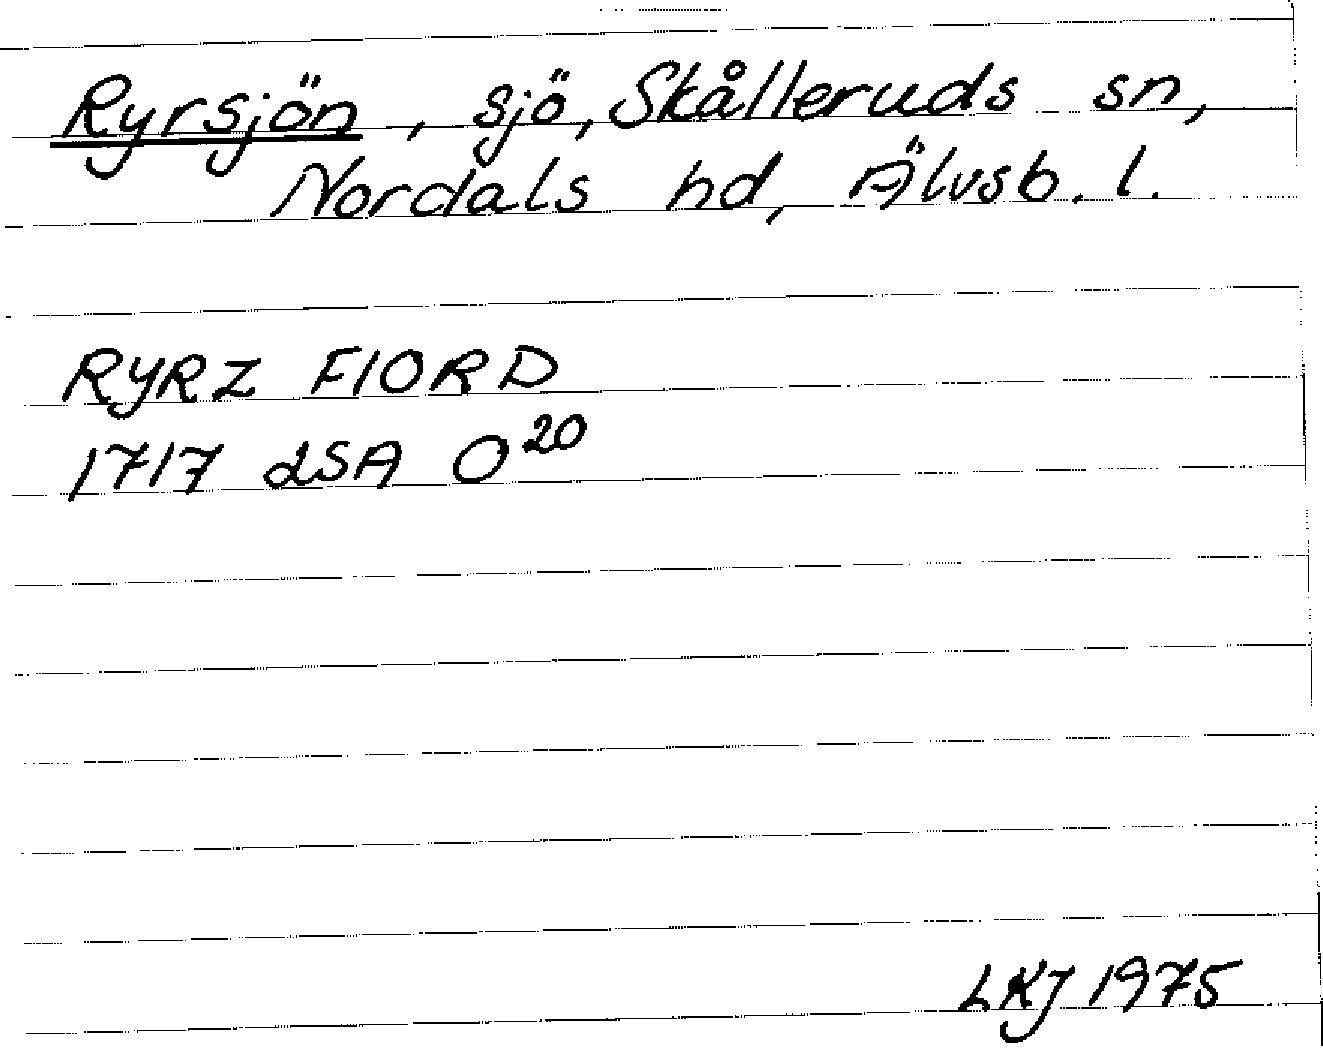 Ryrsjön, sjö, Skålleruds sn,
Nordals hd, Älvsb. l.
RYRZ FIORD
1717 LSA O²⁰
LKJ 1975